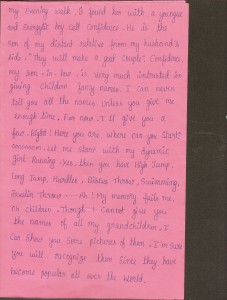 my evening walk, I found her with a younger
and energetic boy call Confidence. He is the
son of my distant relative from my husband's
side. "They will make a good couple". Confidence,
my son-in-law, is very much interested in
giving children fancy names. I can never
tell you all the names unless you give me
enough time. For now, I'll give you a
few. Right! Here you are where can you start?
Let me start with my dynamic
girl Running. Yes. Then you have High Jump,
Long Jump, Hurdles, Discus Throw, Swimming,
Javelin Throw ---- Ah! My memory fails me.
Oh children. Though I cannot give you
the names of all my grandchildren, I
can show you some pictures of them. I'm sure
you will recognize them since they have
become popular all over the world.